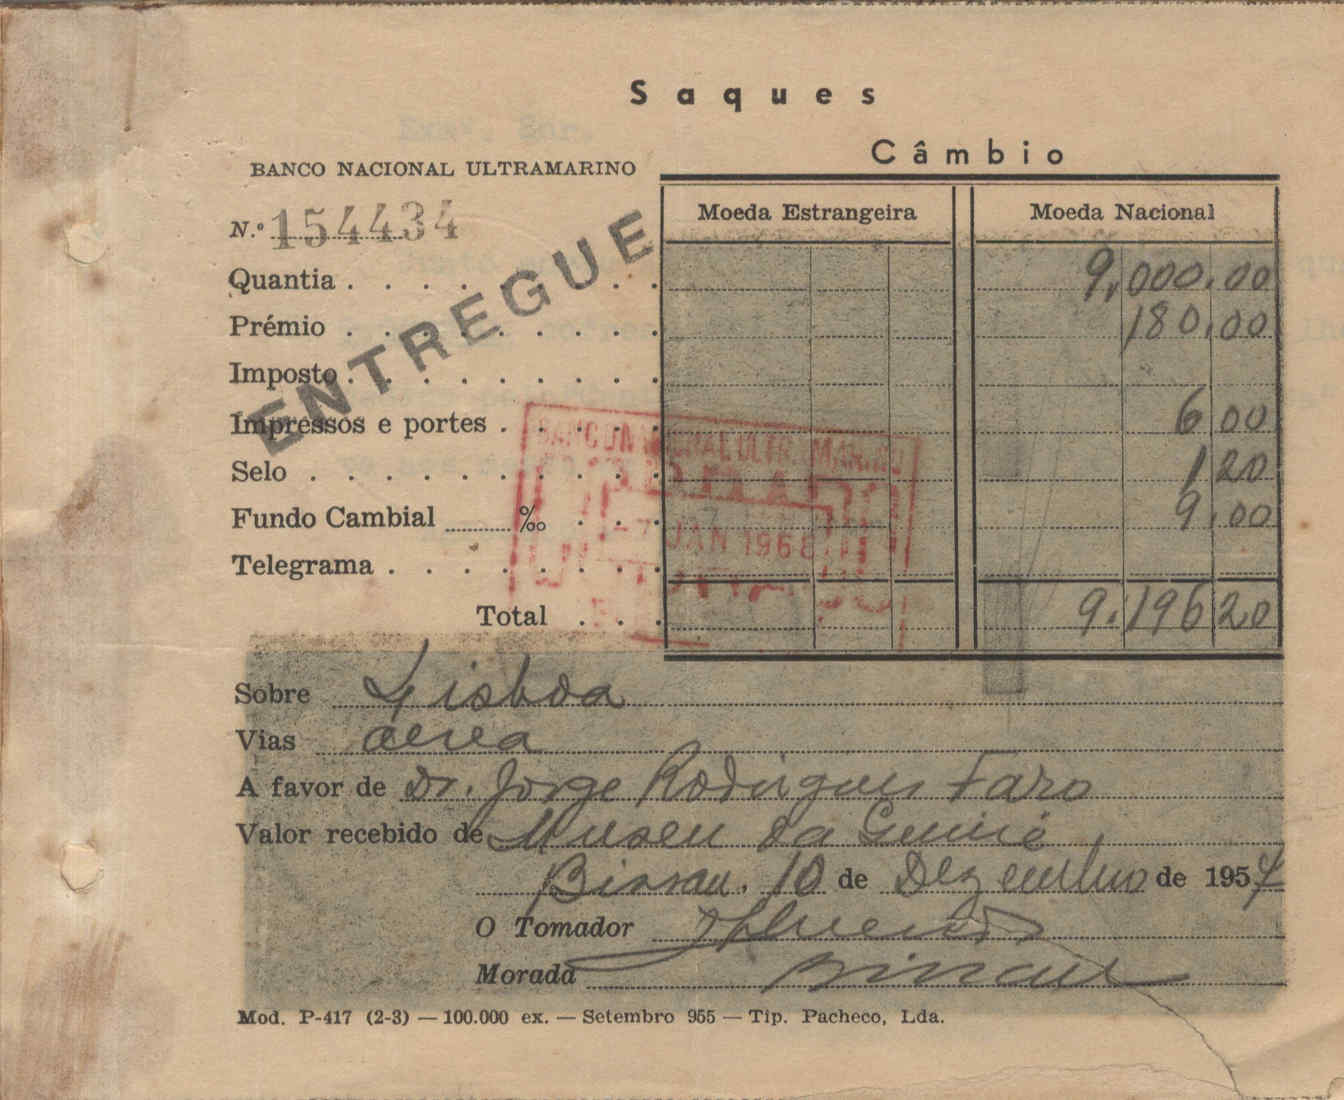 Saques
Câmbio
BANCO NACIONAL ULTRAMARINO
Moeda Estrangeira Moeda Nacional
N.º 154434
ENTREGUE
Quantia . . . . . . . . . 9,000.00
Prémio . . . . . . . . . 180.00
Imposto . . . . . . . . .
Impressos e portes . . . . 6 00
Selo . . . . . . . . . . 1 20
Fundo Cambial ........‰ . . . 9.00
Telegrama . . . . . . . .
Total . . . 9.196 20
BANCO NACIONAL ULTRAMARINO
JAN 1968
Sobre Lisboa
Vias aérea
A favor de Dr. Jorge Rodrigues Faro
Valor recebido de Museu da Guiné
Bissau, 10 de Dezembro de 1957
O Tomador
Morada Bissau
Mod. P-417 (2-3) — 100.000 ex. — Setembro 955 — Tip. Pacheco, Lda.